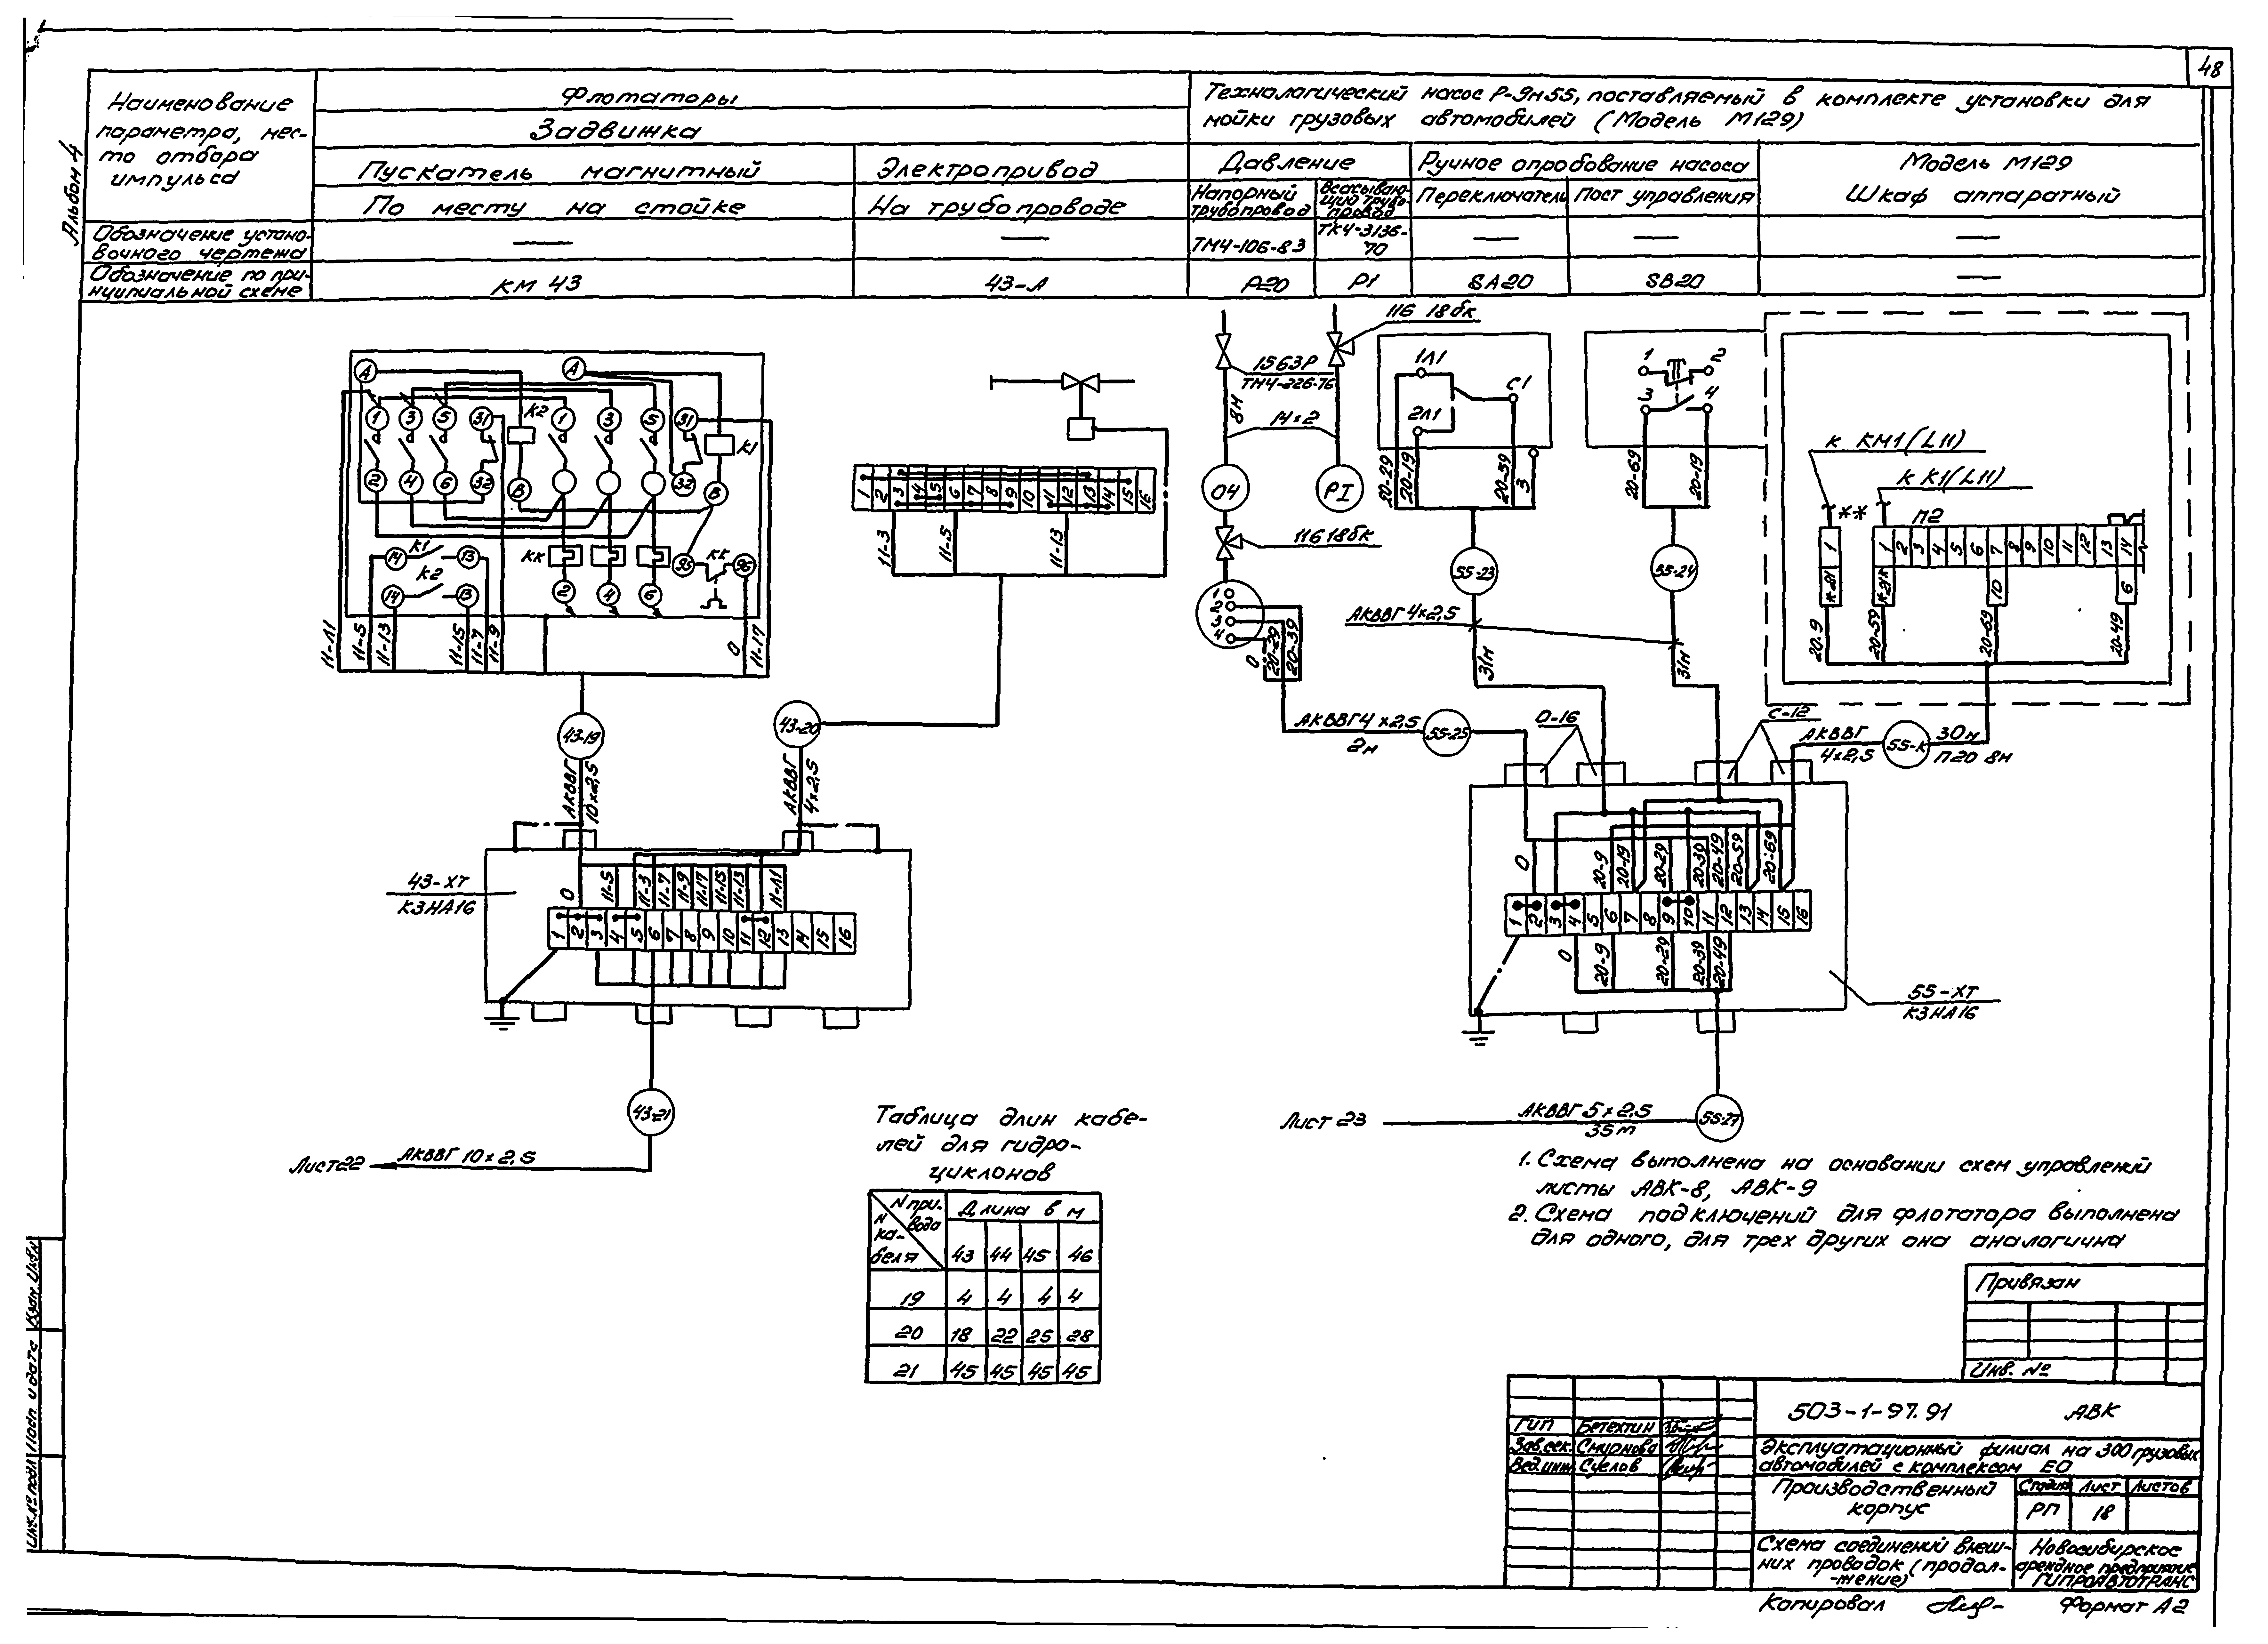 48
Альбом 4
Наименование
параметра, мес-
то отбора
импульса
Флотаторы
Задвижка
Пускатель магнитный
Электропривод
По месту на стойке
На трубопроводе
Технологический насос Р-9м55, поставляемый в комплекте установки для
мойки грузовых автомобилей (Модель М129)
Давление
Ручное опробование насоса
Модель М129
Напорный
трубопровод
Всасываю-
щий трубо-
провод
Переключатель
Пост управления
Шкаф аппаратный
Обозначение устано-
вочного чертежа
—
—
ТМ4-106-83
ТК4-3136-
70
—
—
—
Обозначение по при-
нципиальной схеме
КМ 43
43-А
Р20
Р1
SA20
SB20
—
А
А
1
3
5
31
К2
1
3
5
31
К1
2
4
6
32
В
32
В
КК
КК
95
96
14
К1
13
14
К2
13
2
4
6
11-Л1
11-5
11-13
11-15
11-7
11-9
0
11-17
43-19
АКВВГ
10×2,5
43-20
АКВВГ
4×2,5
1 2 3 4 5 6 7 8 9 10 11 12 13 14 15 16
11-3
11-5
11-13
43-ХТ
КЗНА16
0
11-5
11-3
11-7
11-9
11-17
11-15
11-13
11-Л1
1 2 3 4 5 6 7 8 9 10 11 12 13 14 15 16
43-21
Лист22
АКВВГ 10×2,5
116 18бк
1563Р
ТМ4-226-76
8м
14×2
О4
РI
116 18бк
1
2
3
4
0
20-29
20-39
1Л1
2Л1
С1
20-29
20-19
20-59
3
1
2
3
4
20-69
20-19
55-23
55-24
АКВВГ 4×2,5
31м
31м
к КМ1(L11)
к К1(L11)
**
П2
1
1 2 3 4 5 6 7 8 9 10 11 12 13 14
*-21
*-21*
10
6
20-9
20-59
20-69
20-49
АКВВГ4×2,5
2м
55-25
О-16
С-12
АКВВГ
4×2,5
55-К
30м
П20 8м
0
20-9
20-19
20-29
20-30
20-49
20-59
20-69
1 2 3 4 5 6 7 8 9 10 11 12 13 14 15 16
0
20-9
20-29
20-39
20-49
55-ХТ
КЗНА16
Лист 23
АКВВГ 5×2,5
35м
55-27
Таблица длин кабе-
лей для гидро-
циклонов
N при-
вода
N
ка-
беля
Длина в м
43 44 45 46
19 4 4 4 4
20 18 22 25 28
21 45 45 45 45
1. Схема выполнена на основании схем управлений
листы АВК-8, АВК-9
2. Схема подключений для флотатора выполнена
для одного, для трех других она аналогична
Привязан
Инв. №
ГИП Бетехтин
Зав.сек. Смирнова
Вед.инж Суслов
503-1-97.91 АВК
Эксплуатационный филиал на 300 грузовых
автомобилей с комплексом ЕО
Производственный
корпус
Стадия Лист Листов
РП 18
Схема соединений внеш-
них проводок (продол-
-жение)
Новосибирское
арендное предприятие
ГИПРОАВТОТРАНС
Копировал
Формат А2
Инв.№ подл
Подп и дата
Взам. Инв.№